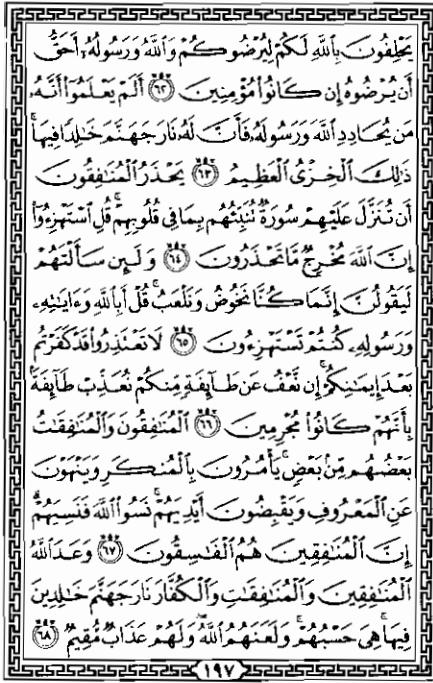 يَحْلِفُونَ بِٱللَّهِ لَكُمْ لِيُرْضُوكُمْ وَٱللَّهُ وَرَسُولُهُۥٓ أَحَقُّ
أَن يُرْضُوهُ إِن كَانُوا۟ مُؤْمِنِينَ ٦٢ أَلَمْ يَعْلَمُوٓا۟ أَنَّهُۥ
مَن يُحَادِدِ ٱللَّهَ وَرَسُولَهُۥ فَأَنَّ لَهُۥ نَارَ جَهَنَّمَ خَٰلِدًا فِيهَا ۚ
ذَٰلِكَ ٱلْخِزْىُ ٱلْعَظِيمُ ٦٣ يَحْذَرُ ٱلْمُنَٰفِقُونَ
أَن تُنَزَّلَ عَلَيْهِمْ سُورَةٌ تُنَبِّئُهُم بِمَا فِى قُلُوبِهِمْ ۚ قُلِ ٱسْتَهْزِءُوٓا۟
إِنَّ ٱللَّهَ مُخْرِجٌ مَّا تَحْذَرُونَ ٦٤ وَلَئِن سَأَلْتَهُمْ
لَيَقُولُنَّ إِنَّمَا كُنَّا نَخُوضُ وَنَلْعَبُ ۚ قُلْ أَبِٱللَّهِ وَءَايَٰتِهِۦ
وَرَسُولِهِۦ كُنتُمْ تَسْتَهْزِءُونَ ٦٥ لَا تَعْتَذِرُوا۟ قَدْ كَفَرْتُم
بَعْدَ إِيمَٰنِكُمْ ۚ إِن نَّعْفُ عَن طَآئِفَةٍ مِّنكُمْ نُعَذِّبْ طَآئِفَةًۢ
بِأَنَّهُمْ كَانُوا۟ مُجْرِمِينَ ٦٦ ٱلْمُنَٰفِقُونَ وَٱلْمُنَٰفِقَٰتُ
بَعْضُهُم مِّنۢ بَعْضٍ ۚ يَأْمُرُونَ بِٱلْمُنكَرِ وَيَنْهَوْنَ
عَنِ ٱلْمَعْرُوفِ وَيَقْبِضُونَ أَيْدِيَهُمْ ۚ نَسُوا۟ ٱللَّهَ فَنَسِيَهُمْ ۗ
إِنَّ ٱلْمُنَٰفِقِينَ هُمُ ٱلْفَٰسِقُونَ ٦٧ وَعَدَ ٱللَّهُ
ٱلْمُنَٰفِقِينَ وَٱلْمُنَٰفِقَٰتِ وَٱلْكُفَّارَ نَارَ جَهَنَّمَ خَٰلِدِينَ
فِيهَا ۚ هِىَ حَسْبُهُمْ ۚ وَلَعَنَهُمُ ٱللَّهُ ۖ وَلَهُمْ عَذَابٌ مُّقِيمٌ ٦٨
١٩٧